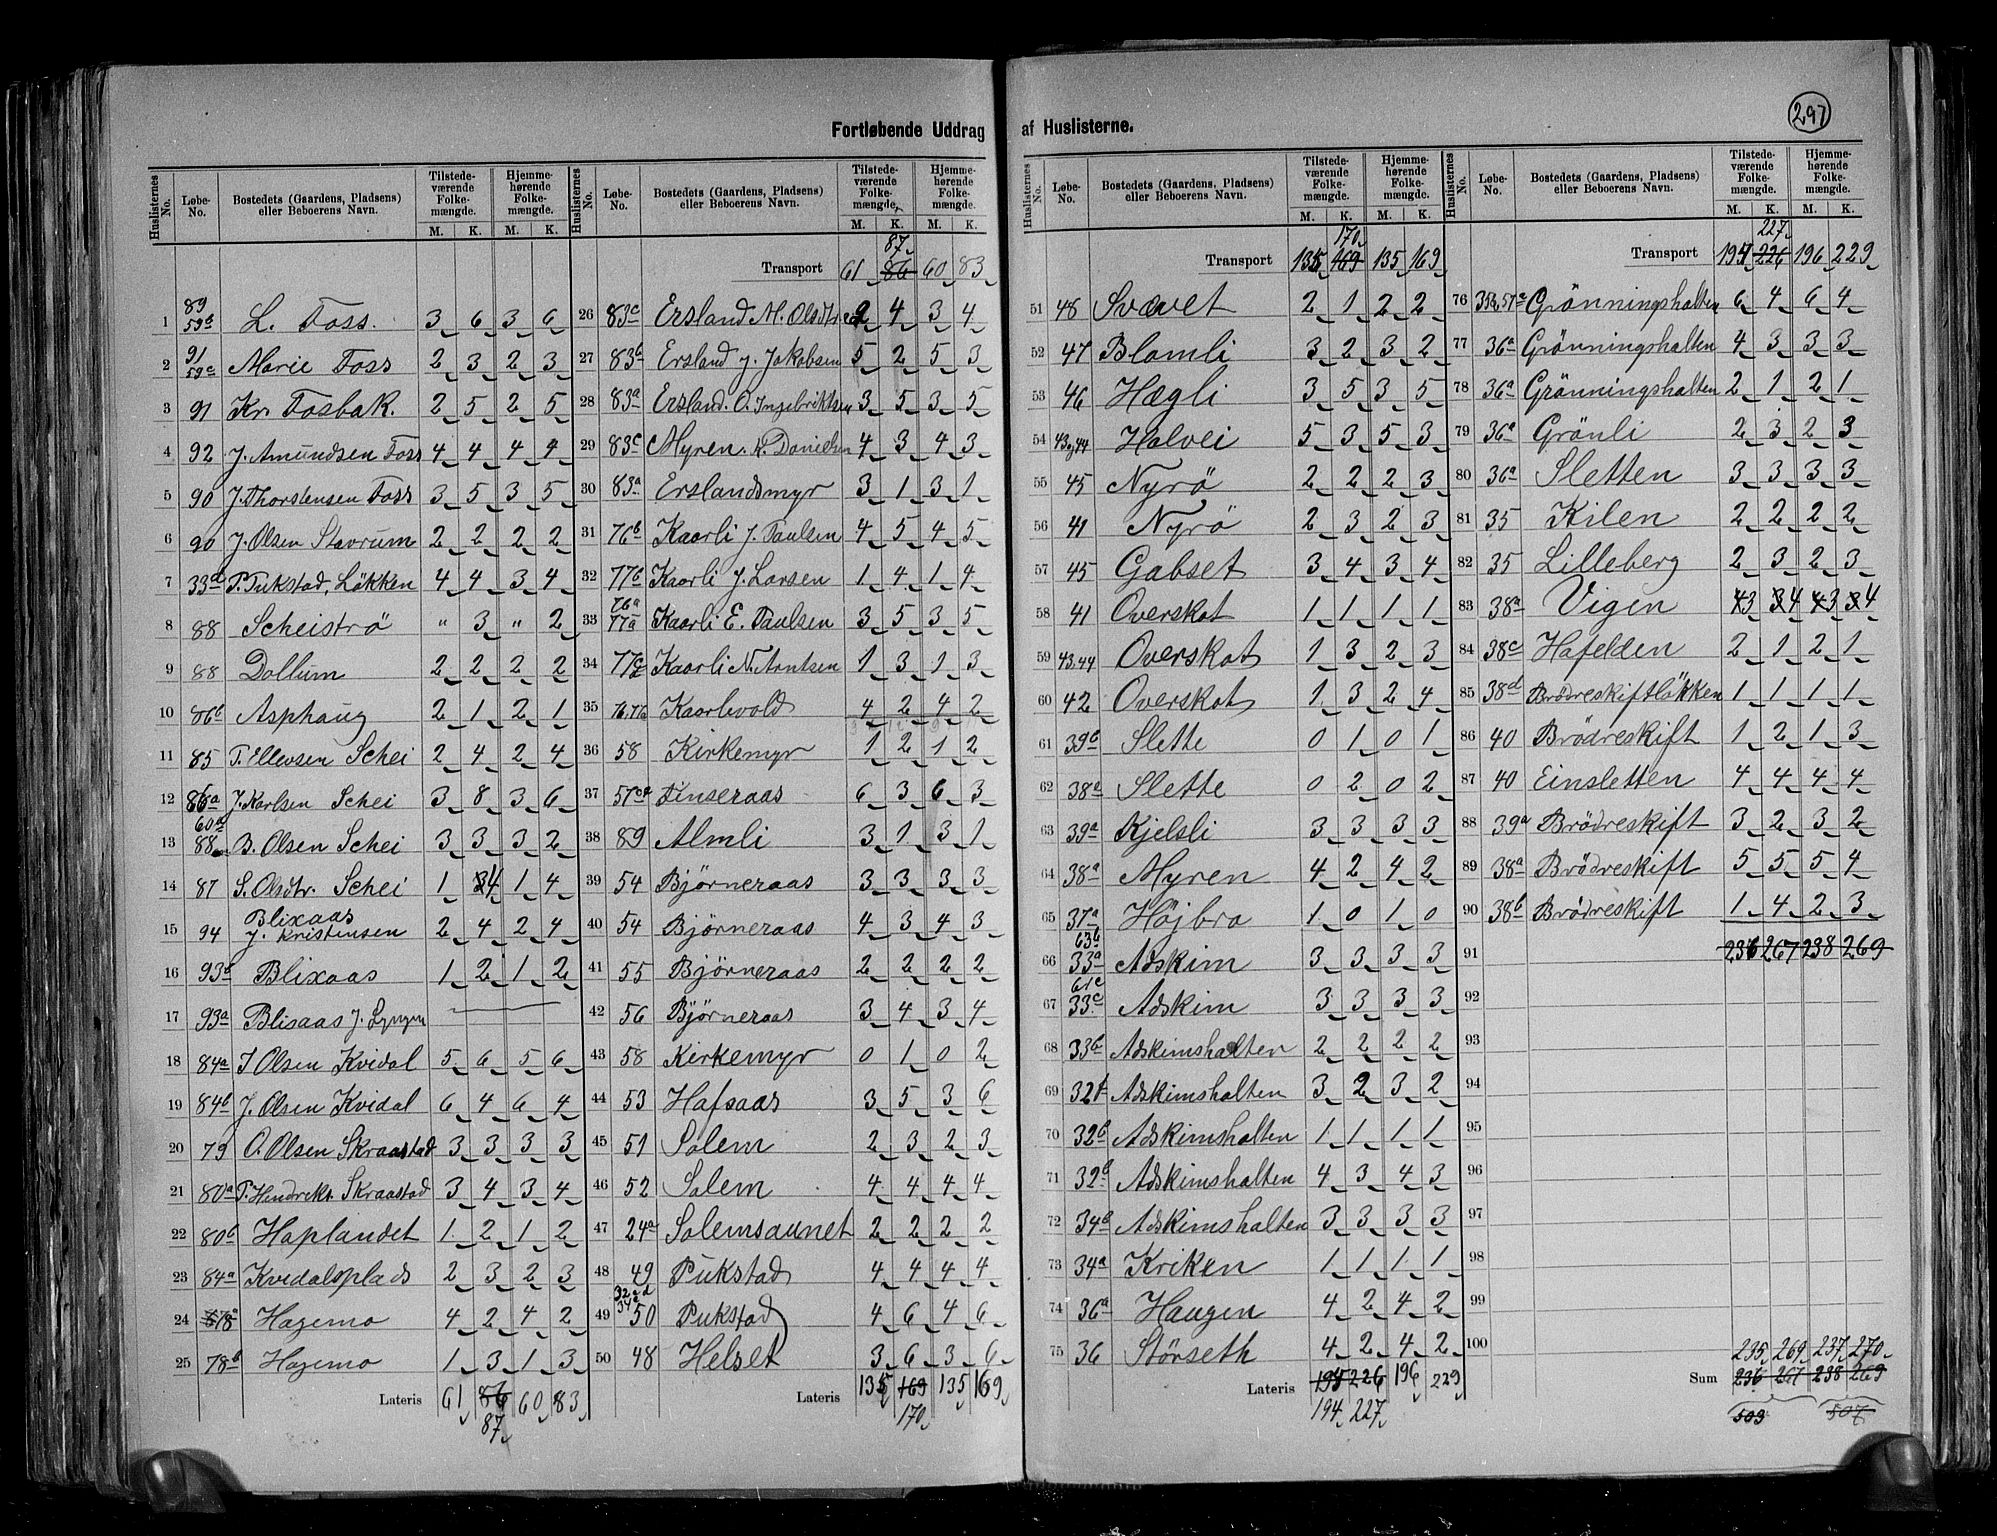 297
Fortløbende Uddrag af Huslisterne.
Huslisternes No. | Løbe-No. | Bostedets (Gaardens, Pladsens) eller Beboerens Navn. | Tilstedeværende Folkemængde. M. K. | Hjemmehørende Folkemængde. M. K.
1 89 59b L. Foss. 3 6 3 6
2 91 59c Marie Foss 2 3 2 3
3 91 Kr. Fosbak. 2 5 2 5
4 92 J. Amundsen Foss 4 4 4 4
5 90 J. Thorstensen Foss 3 5 3 5
6 90 J. Olsen Stavrum 2 2 2 2
7 33d P. Pukstad, Løkken 4 4 3 4
8 88 Scheistrø " 3 " 2
9 88 Dollum 2 2 2 2
10 86b Asphaug 2 1 2 1
11 85 P. Ellevsen Schei 2 4 2 4
12 86a J. Karlsen Schei 3 8 3 6
13 60d 88 B. Olsen Schei 3 3 3 2
14 87 S. Olsdtr. Schei 1 4 1 4
15 94 Blixaas J. Kristensen 2 4 2 4
16 93b Blixaas 1 2 1 2
17 93a Blixaas J. Lyngen
18 84a J Olsen Kvidal 5 6 5 6
19 84b J. Olsen Kvidal 6 4 6 4
20 79 O. Olsen Skraastad 3 3 3 3
21 80a P. Hendrekt. Skraastad 3 4 3 4
22 80b Haplandet 1 2 1 2
23 84a Kvidalsplads 2 3 2 3
24 78a Hagemo 4 2 4 2
25 78b Hagemo 1 3 1 3
Lateris 61 86 60 83
87
Transport 61 86 60 83
87
26 83c Ersland M. Olsdtr. 2 4 3 4
27 83b Ersland J. Jakobsen 5 2 5 3
28 83a Ersland. O. Ingebriktsen 3 5 3 5
29 83c Myren. K. Danielsen 4 3 4 3
30 83a Erslandsmyr 3 1 3 1
31 76b Kaarli J. Paulsen 4 5 4 5
32 77b Kaarli J. Larsen 1 4 1 4
33 76a 77a Kaarli E. Paulsen 3 5 3 5
34 77c Kaarli N. Arntsen 1 3 1 3
35 76.77a Kaarlivold 4 2 4 2
36 58 Kirkemyr 1 2 1 2
37 57cd Finseraas 6 3 6 3
38 89 Almli 3 1 3 1
39 54 Bjørneraas 3 3 3 3
40 54 Bjørneraas 4 3 4 3
41 55 Bjørneraas 2 2 2 2
42 56 Bjørneraas 3 4 3 4
43 58 Kirkemyr 0 1 0 2
44 53 Hafsaas 3 5 3 6
45 51 Solem 2 3 2 3
46 52 Solem 4 4 4 4
47 24a Solemsaunet 2 2 2 2
48 49 Pukstad 4 4 4 4
49 50 Pukstad 4 6 4 6
50 48 Helset 3 6 3 6
Lateris 135 169 135 169
170
Transport 135 169 135 169
170
51 48 Svævet 2 1 2 2
52 47 Blamli 3 2 3 2
53 46 Hægli 3 5 3 5
54 43og44 Holvei 5 3 5 3
55 45 Nyrø 2 2 2 3
56 41 Nyrø 2 3 2 3
57 45 Gabset 3 4 3 4
58 41 Overskot 1 1 1 1
59 43.44 Overskot 1 3 2 3
60 42 Overskot 1 3 2 4
61 39b Slette 0 1 0 1
62 38a Slette 0 2 0 2
63 39a Kjelsli 3 3 3 3
64 38a Myren 4 2 4 2
65 37a Højbro 1 0 1 0
66 63b 33a Adskim 3 3 3 3
67 61c 33c Adskim 3 3 3 3
68 33b Adskimshalten 2 2 2 2
69 32f Adskimshalten 3 2 3 2
70 32b Adskimshalten 1 1 1 1
71 32b Adskimshalten 4 3 4 3
72 34b Adskimshalten 3 3 3 3
73 34a Kriken 1 1 1 1
74 36a Haugen 4 2 4 2
75 36 Størseth 4 2 4 2
Lateris 195 226 196 229
194 227
Transport 194 226 196 229
227
76 35b,57e Grønningshalten 6 4 6 4
77 36a Grønningshalten 4 3 3 3
78 36a Grønningshalten 2 1 2 1
79 36a Grønli 2 3 2 3
80 36a Sletten 3 3 3 3
81 35 Kilen 2 2 2 2
82 35 Lilleberg 2 3 2 3
83 38a Vigen 3 4 3 4
84 38c Hafelden 2 1 2 1
85 38d Brødreskiftløkken 1 1 1 1
86 40 Brødreskift 1 2 1 3
87 40 Einsletten 4 4 4 4
88 39a Brødreskift 3 2 3 2
89 38a Brødreskift 5 5 5 4
90 38b Brødreskift 1 4 2 3
91 236 267 238 269
92
93
94
95
96
97
98
99
100
235 269 237 270
Sum 236 267 238 269
503 507